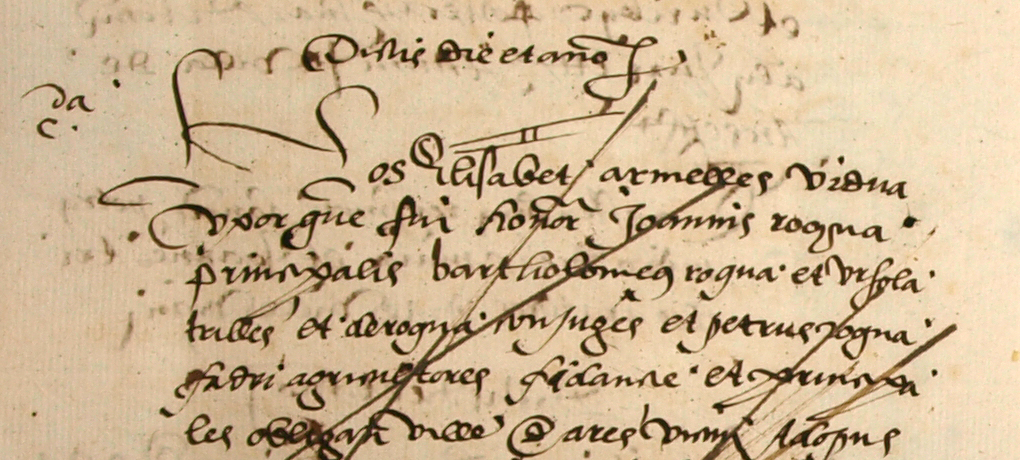 Dictis die et año
da
c.
Nos Elisabet armelles vidua
vxor que fui honor Joannis rogua
principalis bartholomeq rogua et vrsola
trilles et de rogua conjuges et petrus rogua
fadri agricultores fidancie et principa
les obligati ville d ares vicini